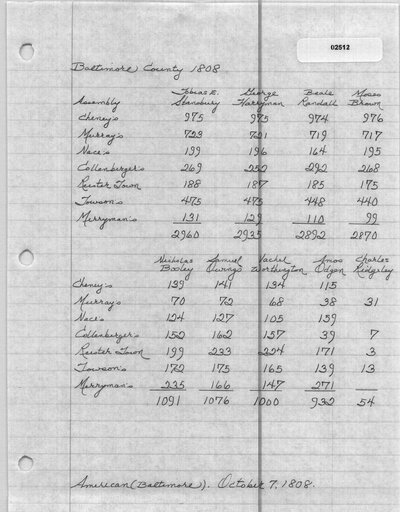 02512
Baltimore County 1808
Tobias E. George Beale Moses
Assembly Stansbury Harryman Randall Brown
Cheney's 975 975 974 976
Murray's 723 721 719 717
Nace's 199 196 164 195
Collenberger's 269 252 292 268
Reister Town 188 187 185 175
Towson's 475 475 448 440
Merryman's 131 129 110 99
2960 2935 2892 2870
Nicholas Samuel Vachel Amos Charles
Bosley Owings Worthington Odgon Ridgeley
Cheney's 139 141 134 115
Murray's 70 72 68 38 31
Nace's 124 127 105 139
Collenberger's 152 162 157 39 7
Reister Town 199 233 224 171 3
Towson's 172 175 165 139 13
Merryman's 235 166 147 271
1091 1076 1000 932 54
American (Baltimore). October 7, 1808.